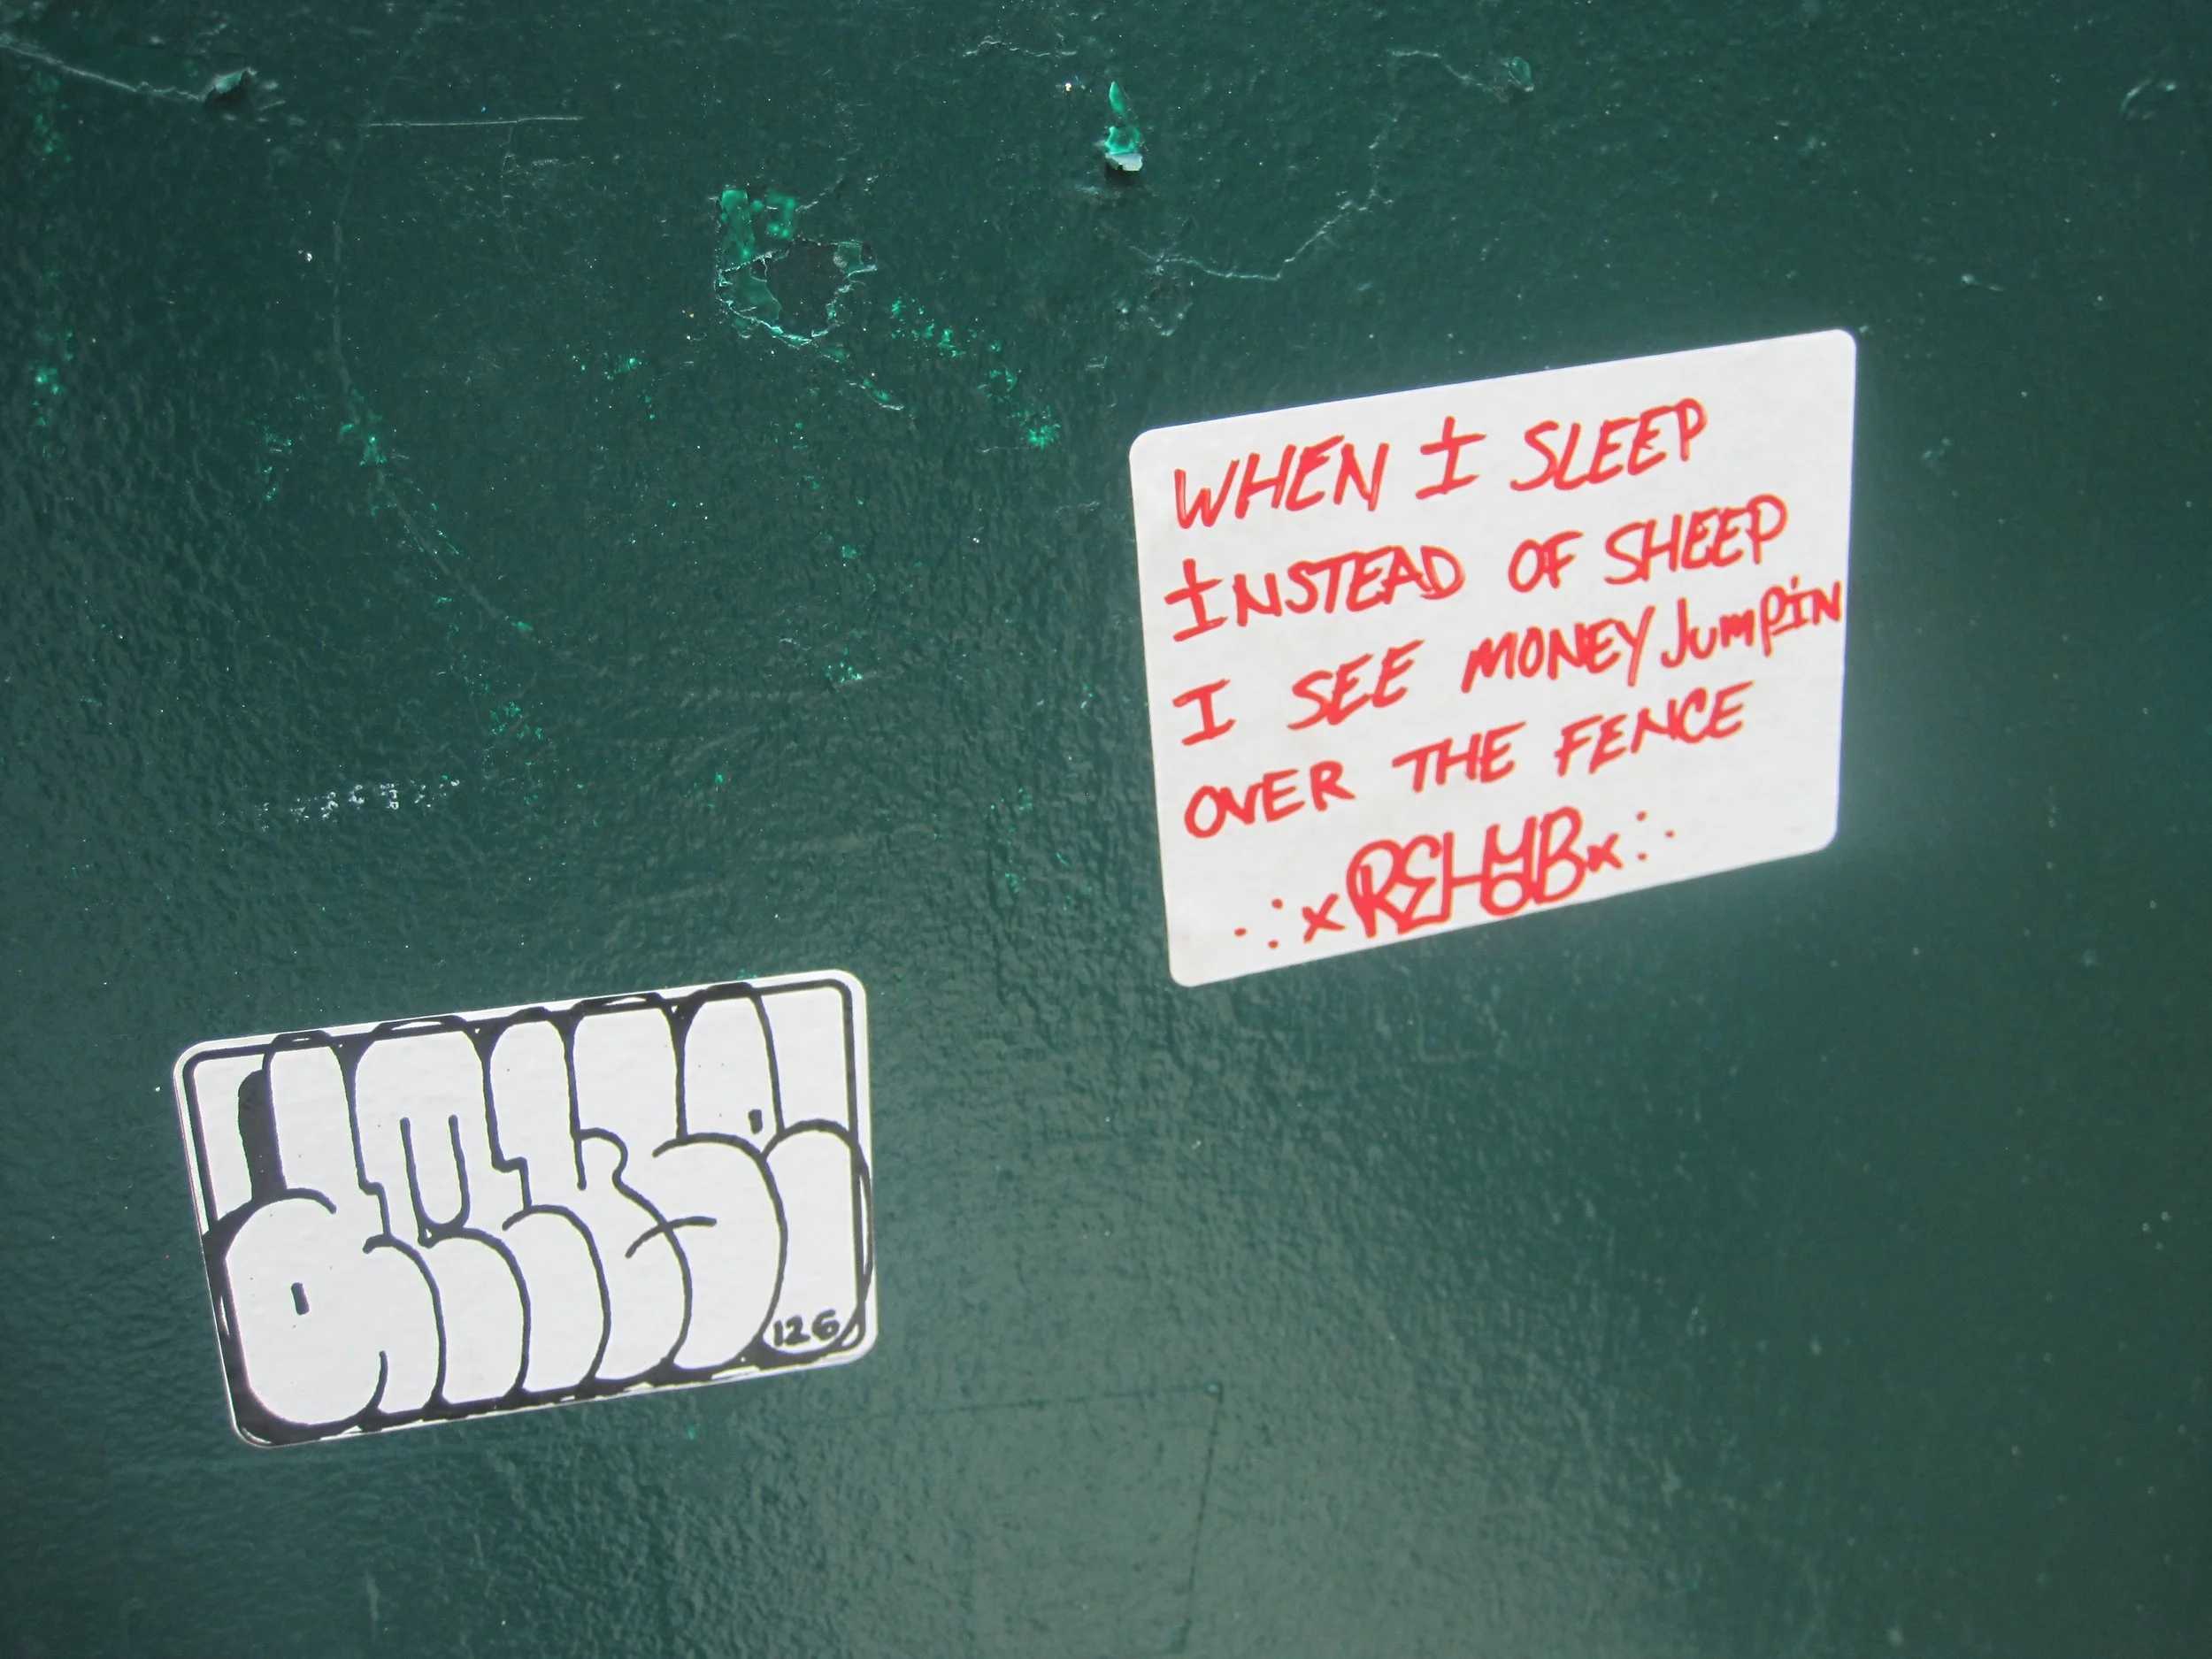 WHEN I SLEEP
INSTEAD OF SHEEP
I SEE MONEY JUMPIN
OVER THE FENCE
126